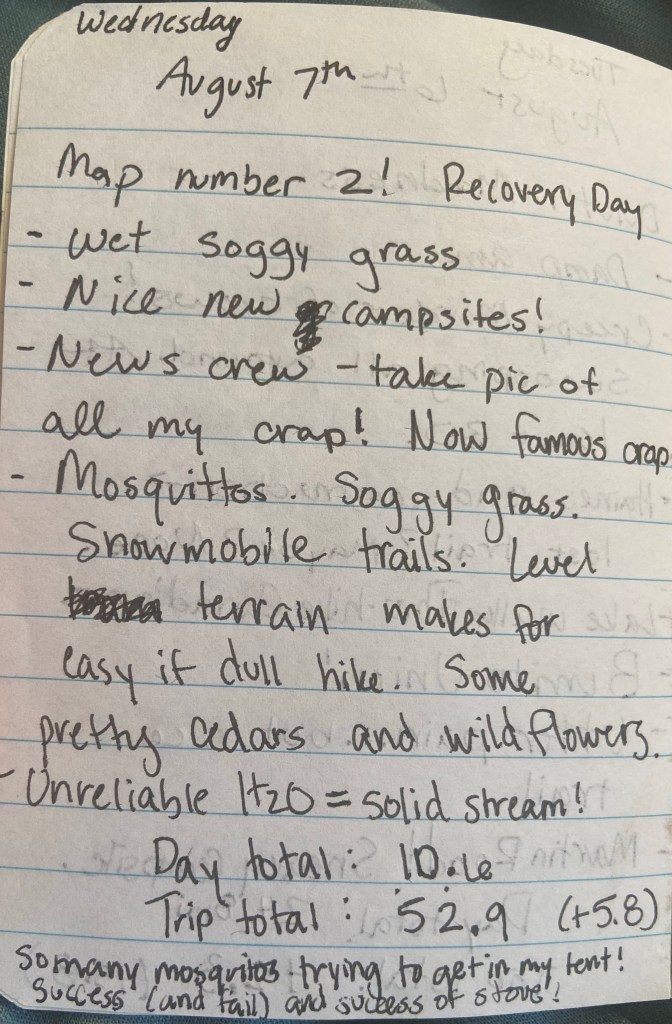 Wednesday
August 7th
Map number 2! Recovery Day
- Wet soggy grass
- Nice new campsites!
- News crew - take pic of
all my crap! Now famous crap
- Mosquittos. Soggy grass.
Snowmobile trails. Level
terrain makes for
easy if dull hike. Some
pretty cedars and wildflowers.
- Unreliable H2O = solid stream!
Day total: 10.6
Trip total: 52.9 (+5.8)
So many mosquitos trying to get in my tent!
Success (and fail) and success of stove!